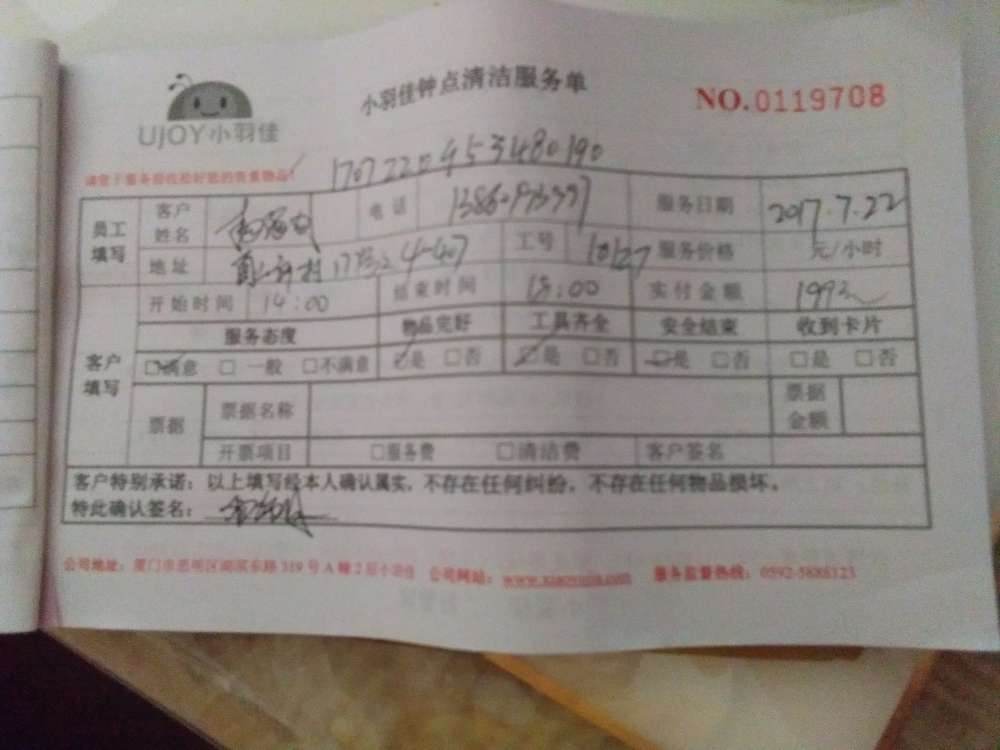 小羽佳钟点清洁服务单
NO.0119708
UJOY小羽佳
请您于服务前收拾好您的贵重物品!
1707220953480190
员工填写 客户姓名 电话 服务日期 2017.7.22
地址 4-407 工号 10127 服务价格 元/小时
开始时间 14:00 结束时间 18:00 实付金额
客户填写 服务态度 物品完好 工具齐全 安全结束 收到卡片
□满意 □一般 □不满意 □是 □否 □是 □否 □是 □否 □是 □否
票据 票据名称 票据金额
开票项目 □服务费 □清洁费 客户签名
客户特别承诺：以上填写经本人确认属实，不存在任何纠纷，不存在任何物品损坏。
特此确认签名：
公司地址：厦门市思明区湖滨东路319号A幢2层小羽佳 公司网站： 服务监督热线：0592-5886123